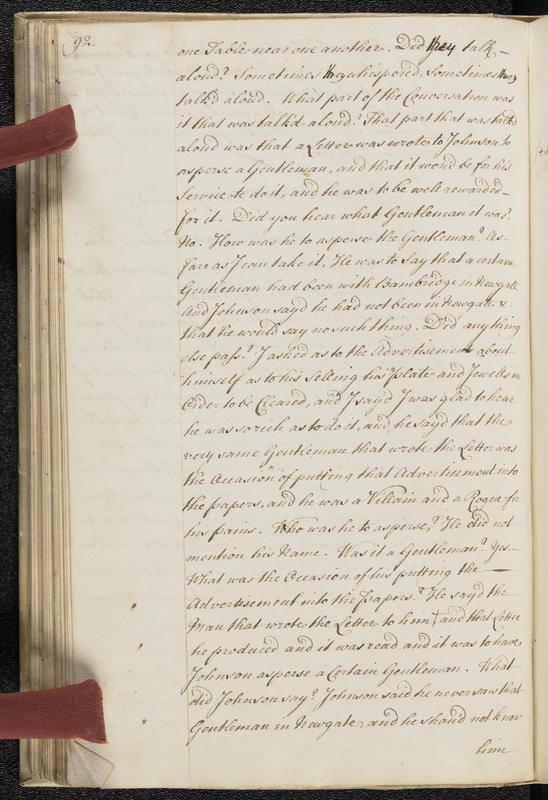 92.
one Table near one another. Did they talk
aloud? Sometimes they whispered Sometimes they
talk'd aloud. What part of the Conversation was
it that was talk'd aloud? That part that was talk'd
aloud was that a Letter was wrote to Johnson to
asperse a Gentleman, and that it would be for his
Service to do it, and he was to be well rewarded
for it. Did you hear what Gentleman it was?
No. How was he to asperse the Gentleman? As
farr as I can take it, He was to Say that a certain
Gentleman had been with Bambridge in Newgate
And Johnson sayd he had not been in Newgate &
that he would say no such thing. Did any thing
else pass? I asked as to the Advertisement about
himself as to his Selling his Plate and Jewells in
Order to be Cleared, and I sayd I was glad to hear
he was so rich as to do it, and he sayd that the
very same Gentleman that wrote the Letter was
the Occasion of putting that Advertisement into
the papers, and he was a Villain and a Rogue for
his pains. Who was he to asperse? He did not
mention his Name. Was it a Gentleman? Yes.
What was the Occasion of his putting the
Advertisement into the Papers? He sayd the
Man that wrote the Letter to him and that Letter
he produced and it was read and it was to have
Johnson asperse a Certain Gentleman. What
did Johnson say? Johnson said he never saw that
Gentleman in Newgate and he should not know
him